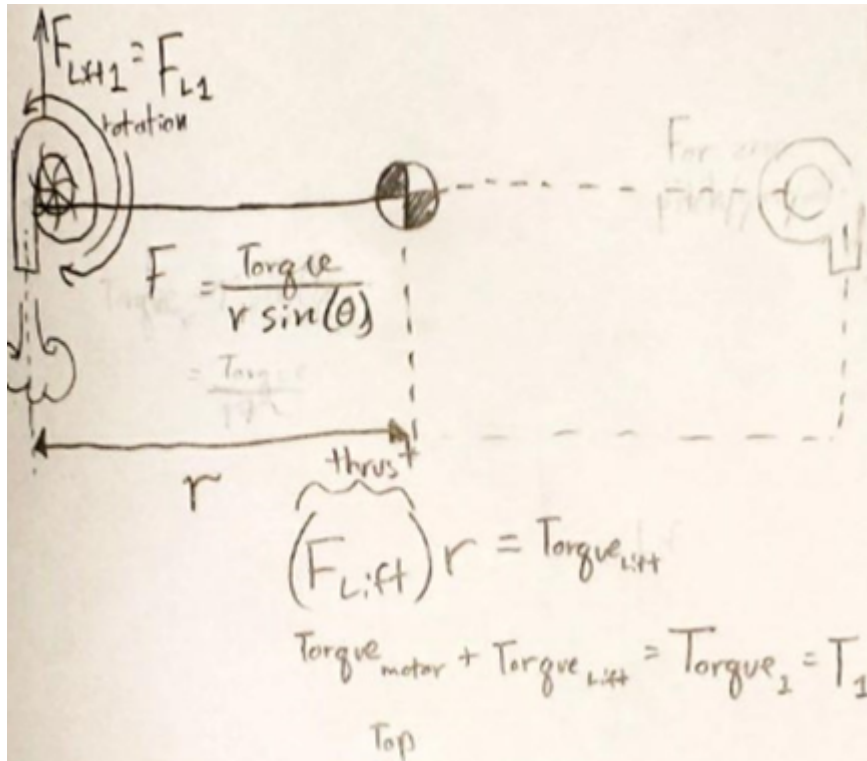 F_Lift1 = F_L1
rotation
F = Torque / r sin(θ)
r
thrust
(F_Lift) r = Torque_Lift
Torque_motor + Torque_Lift = Torque_1 = T_1
Top